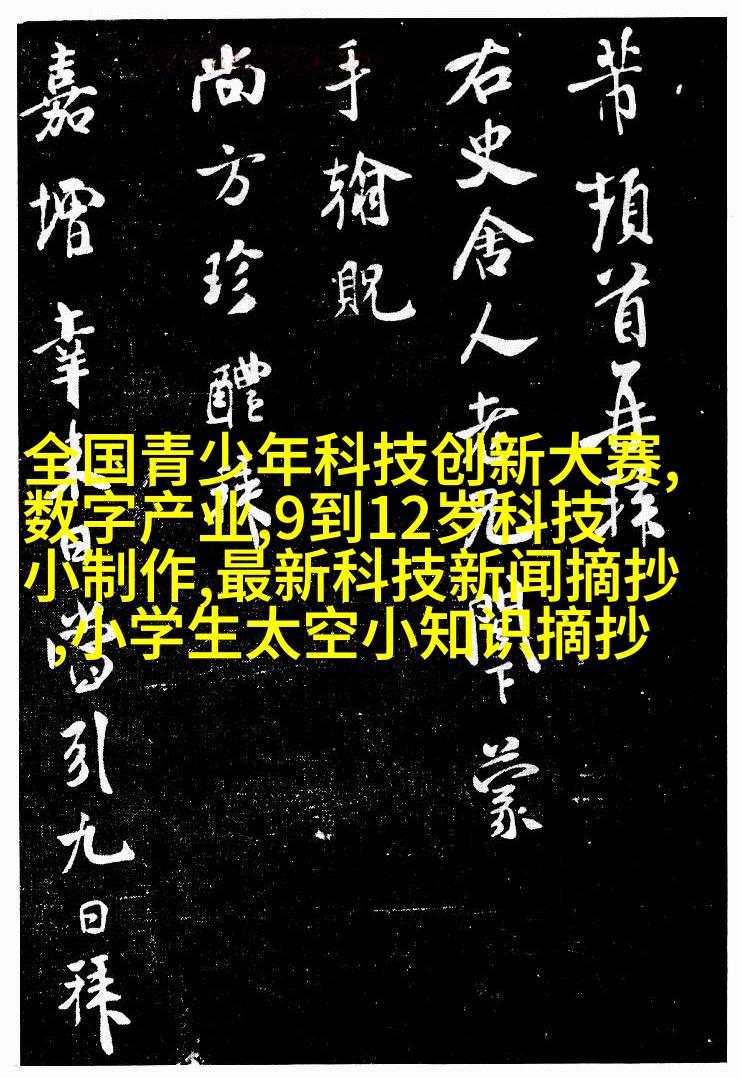 芾頓首再拜
右史舍人老兄閣下蒙
手翰貺
尚方珍醴
嘉增幸来日當引九日拜
全国青少年科技创新大赛,
数字产业,9到12岁科技
小制作,最新科技新闻摘抄
,小学生太空小知识摘抄